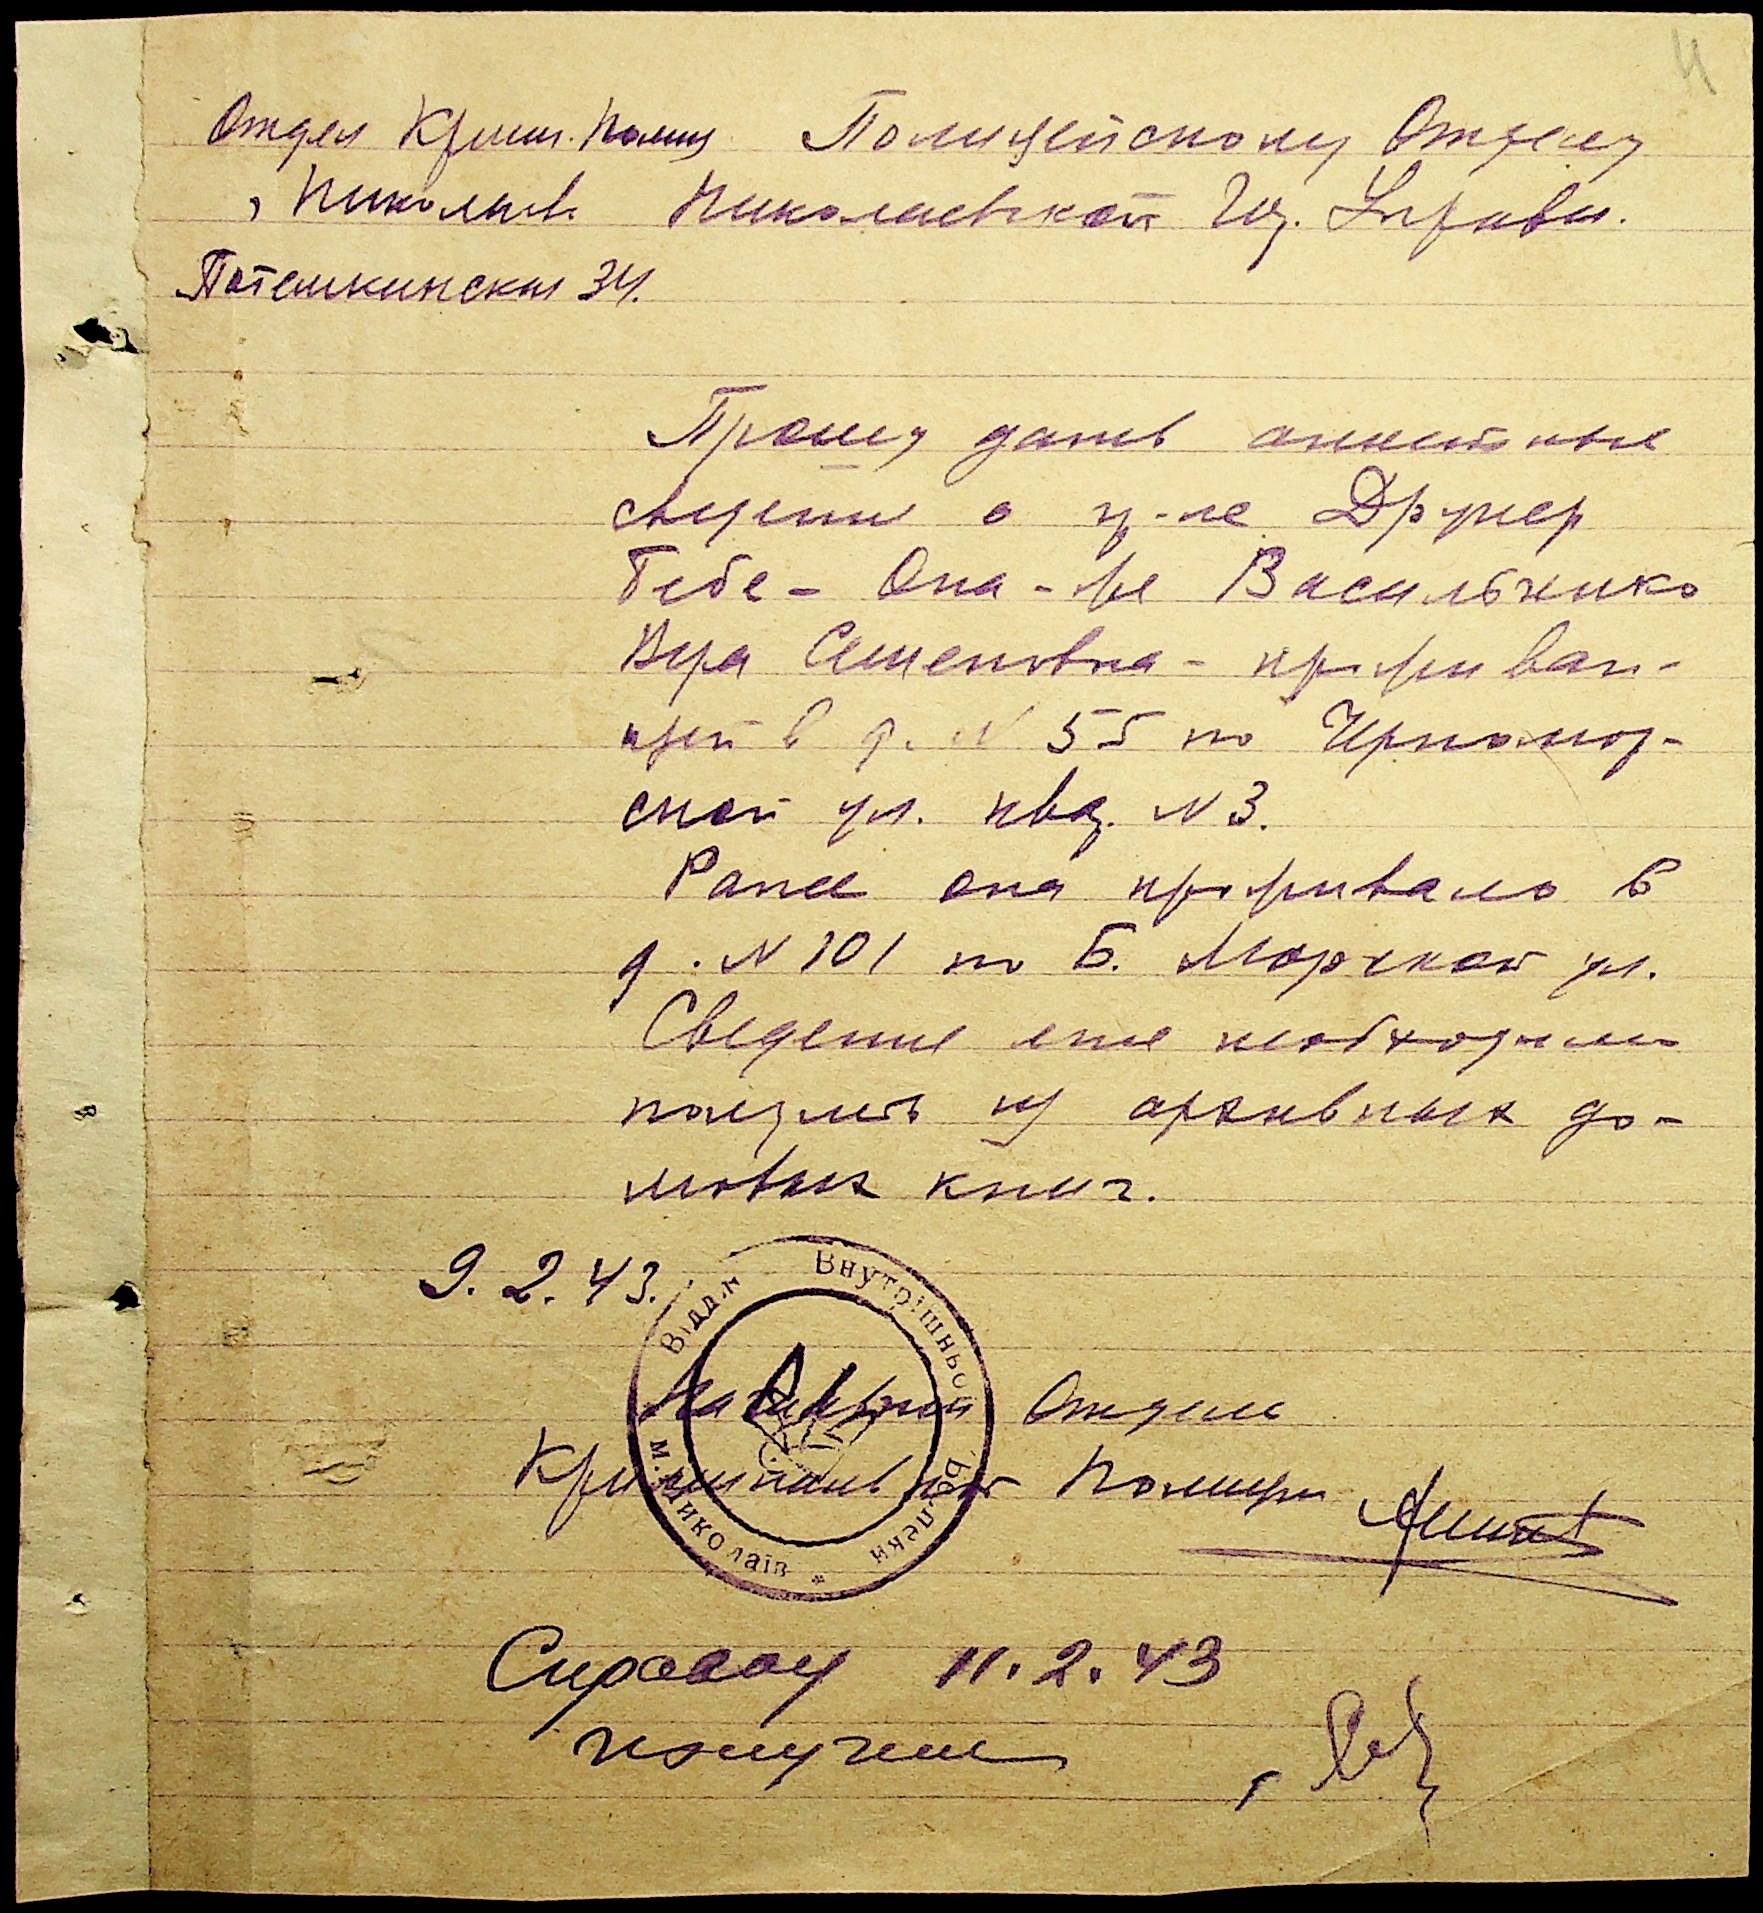 4
Отдел Крим. Полиц.
г. Николаев
Потемкинская 34.
Полицейскому Отделу
Николаевской Гор. Управы.
Прошу дать анкетные
сведения о гр-не Друкер
Бебе - Она-же Васильченко
Вера Семеновна - проживан-
щей в д. N 55 по Черномор-
ской ул. кв. N 3.
Ранее она проживало в
д. N 101 по Б. Морской ул.
Сведение мне необходимо
получить из архивных до-
мовых книг.
9.2.43.
Начальник Отдела
Криминальной Полиции
Відділ Внутрішньої Безпеки
м. Миколаїв *
Справку 11.2.43
получил